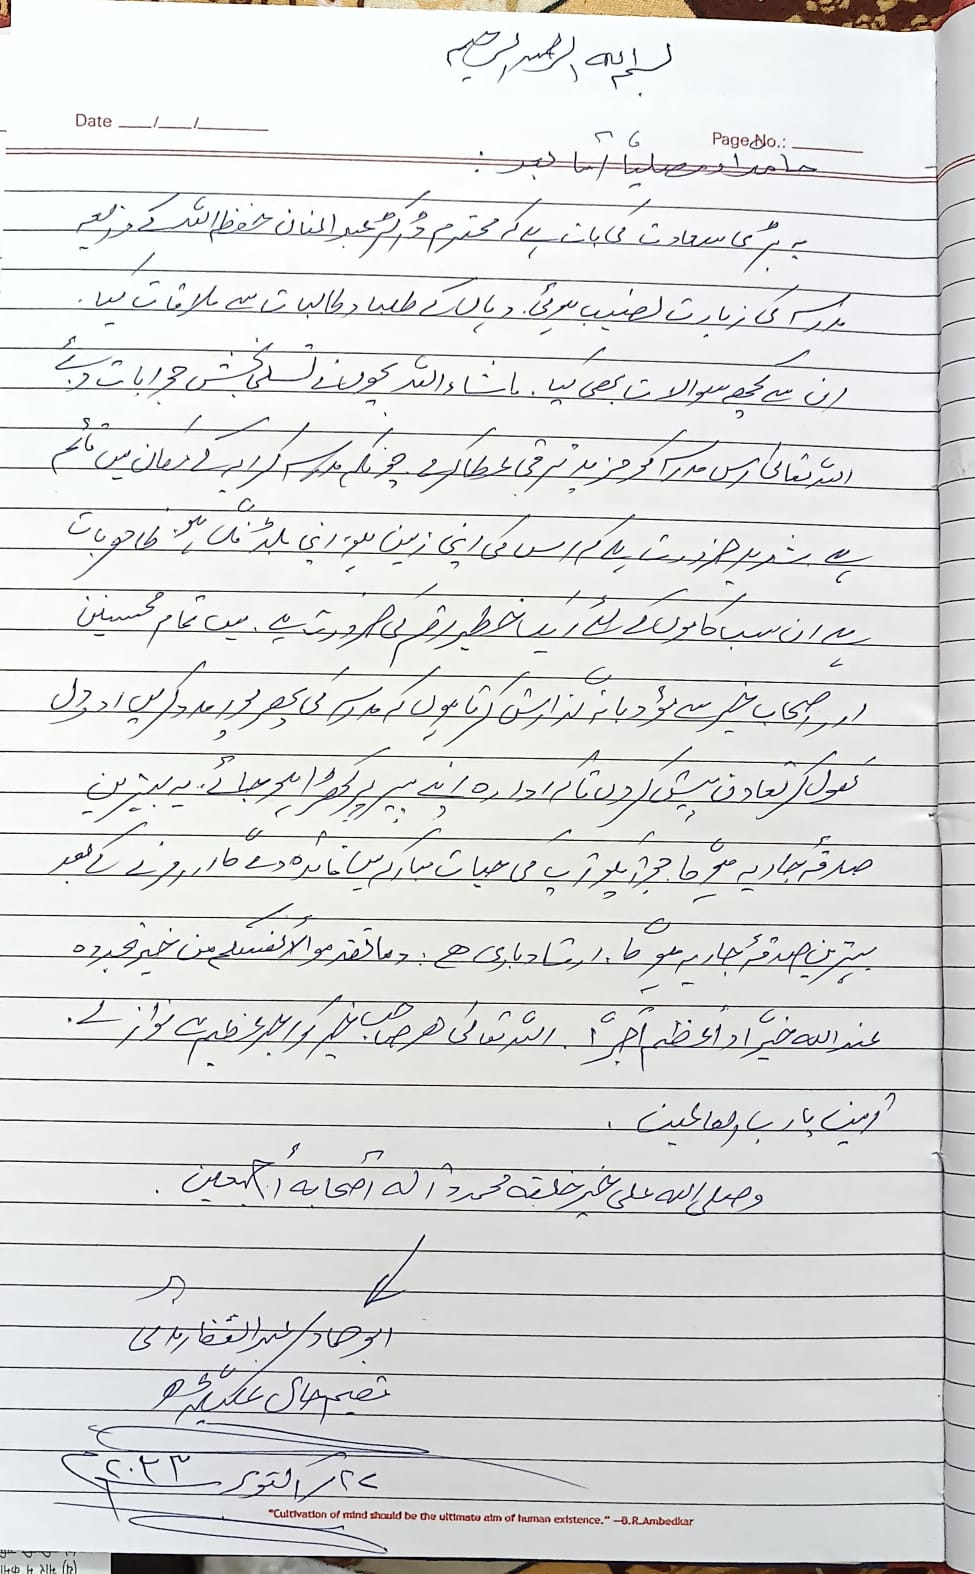 بسم الله الرحمن الرحیم
Date ___/___/______
Page No.: ______
حامدا و مصلیاً أما بعد :
یہ بڑی سعادت کی بات ہے کہ محترم ڈاکٹر عبد المنان حفظہ اللہ کے ذریعہ
مدرسہ کی زیارت نصیب ہوئی. وہاں کے طلبا و طالبات سے ملاقات کیا.
ان سے کچھ سوالات بھی کیا. ماشاء اللہ بچوں نے تسلی بخش جوابات دیئے
اللہ تعالیٰ اس مدرسہ کو مزید ترقی عطا کرے. چونکہ مدرسہ کرایہ کے مکان میں قائم
ہے شدید ضرورت ہے کہ اس کی اپنی زمین ہو، اپنی بلڈنگ ہو. ظاہر بات
ہے ان سب کاموں کے لئے ایک خطیر رقم کی ضرورت ہے. میں تمام محسنین
اور اصحاب خیر سے مؤدبانہ گذارش کرتا ہوں کہ مدرسہ کی بھر پور مدد کریں اور دل
کھول کر تعاون پیش کریں تاکہ ادارہ اپنے پیر پر کھڑا ہو جائے. یہ بہترین
صدقۂ جاریہ ہوگا جو آپ کی حیات مبارکہ میں فائدہ دے گا اور مرنے کے بعد
بہترین صدقۂ جاریہ ہوگا. ارشاد باری ہے: وما تقدموا لأنفسكم من خير تجدوه
عند الله خيرًا وأعظم أجرًا. اللہ تعالیٰ ھر صاحب خیر کو اجر عظیم سے نوازے.
آمین یا رب العالمین.
وصلى الله على خير خلقه محمد وآله أصحابه أجمعين.
ابو حماد / عبد الغفار مدنی
مقیم حال علیگڑھ
۲۷/ اکتوبر ۲۰۲۳
"Cultivation of mind should be the ultimate aim of human existence." —B.R.Ambedkar